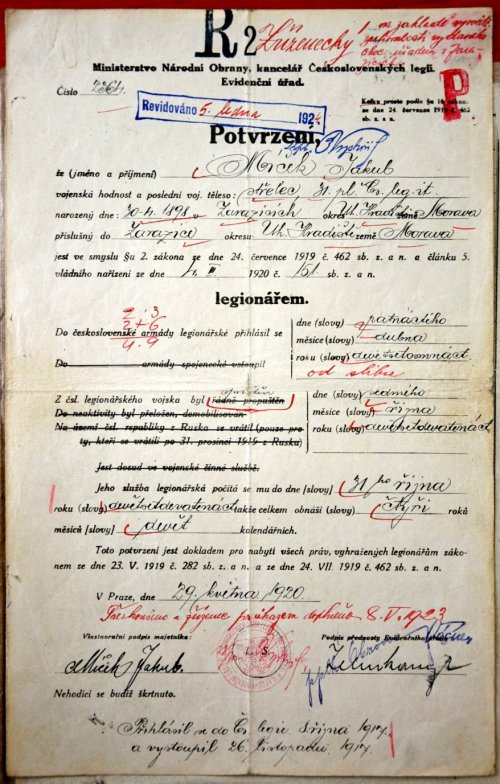 R 2
Ministerstvo Národní Obrany, kancelář Československých legií.
Evidenční úřad.
Číslo
Kolku prosto podle §u 16 zákona
ze dne 24. července 1919 č. 462
sb. z. a n.
Revidováno 5. ledna 192
Potvrzení,
že (jméno a příjmení) Míček Jakub
vojenská hodnost a poslední voj. těleso: střelec 31. pl. Čs. leg. it.
narozený dne: 30-4. 1898 v Zarazicích okres Uh. Hradiště země Morava
příslušný do Zarazice okresu Uh. Hradiště země Morava
jest ve smyslu §u 2. zákona ze dne 24. července 1919 č. 462 sb. z. a n. a článku 5.
vládního nařízení ze dne 4. III 1920 č. 151 sb. z. a n.
legionářem.
Do československé armády legionářské přihlásil se
dne (slovy) patnáctého
měsíce (slovy) dubna
roku (slovy) devětsetosmnáct
od slibu
Do armády spojenecké vstoupil
Z čsl. legionářského vojska byl řádně propuštěn
dne (slovy) sedmého
Do neaktivity byl přeložen, demobilisován
měsíce (slovy) října
Na území čsl. republiky z Ruska se vrátil (pouze pro
roku (slovy) devětsetdevatenáct
ty, kteří se vrátili po 31. prosinci 1919 z Ruska)
Jest dosud ve vojenské činné službě.
Jeho služba legionářská počítá se mu do dne [slovy] 31 ho října
roku (slovy) devětsetdevatenáct takže celkem obnáší (slovy) čtyři roků
měsíců [slovy] devět kalendářních.
Toto potvrzení jest dokladem pro nabytí všech práv, vyhražených legionářům záko-
nem ze dne 23. V. 1919 č. 282 sb. z. a n. a ze dne 24. VII. 1919 č. 462 sb. z. a n.
V Praze, dne 29. května 1920.
8. V. 1923
Vlastnoruční podpis majetníka:
Podpis přednosty Evidenčního
L. S.
Míček Jakub.
Nehodící se budiž škrtnuto.
Přihlásil se do Čs legií října 1917.
a vystoupil 26. listopadu 1917.